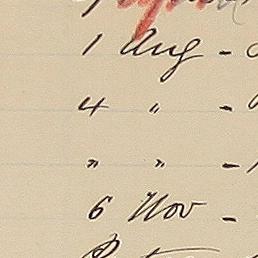 1 Aug -
4 " -
" " -
6 Nov -